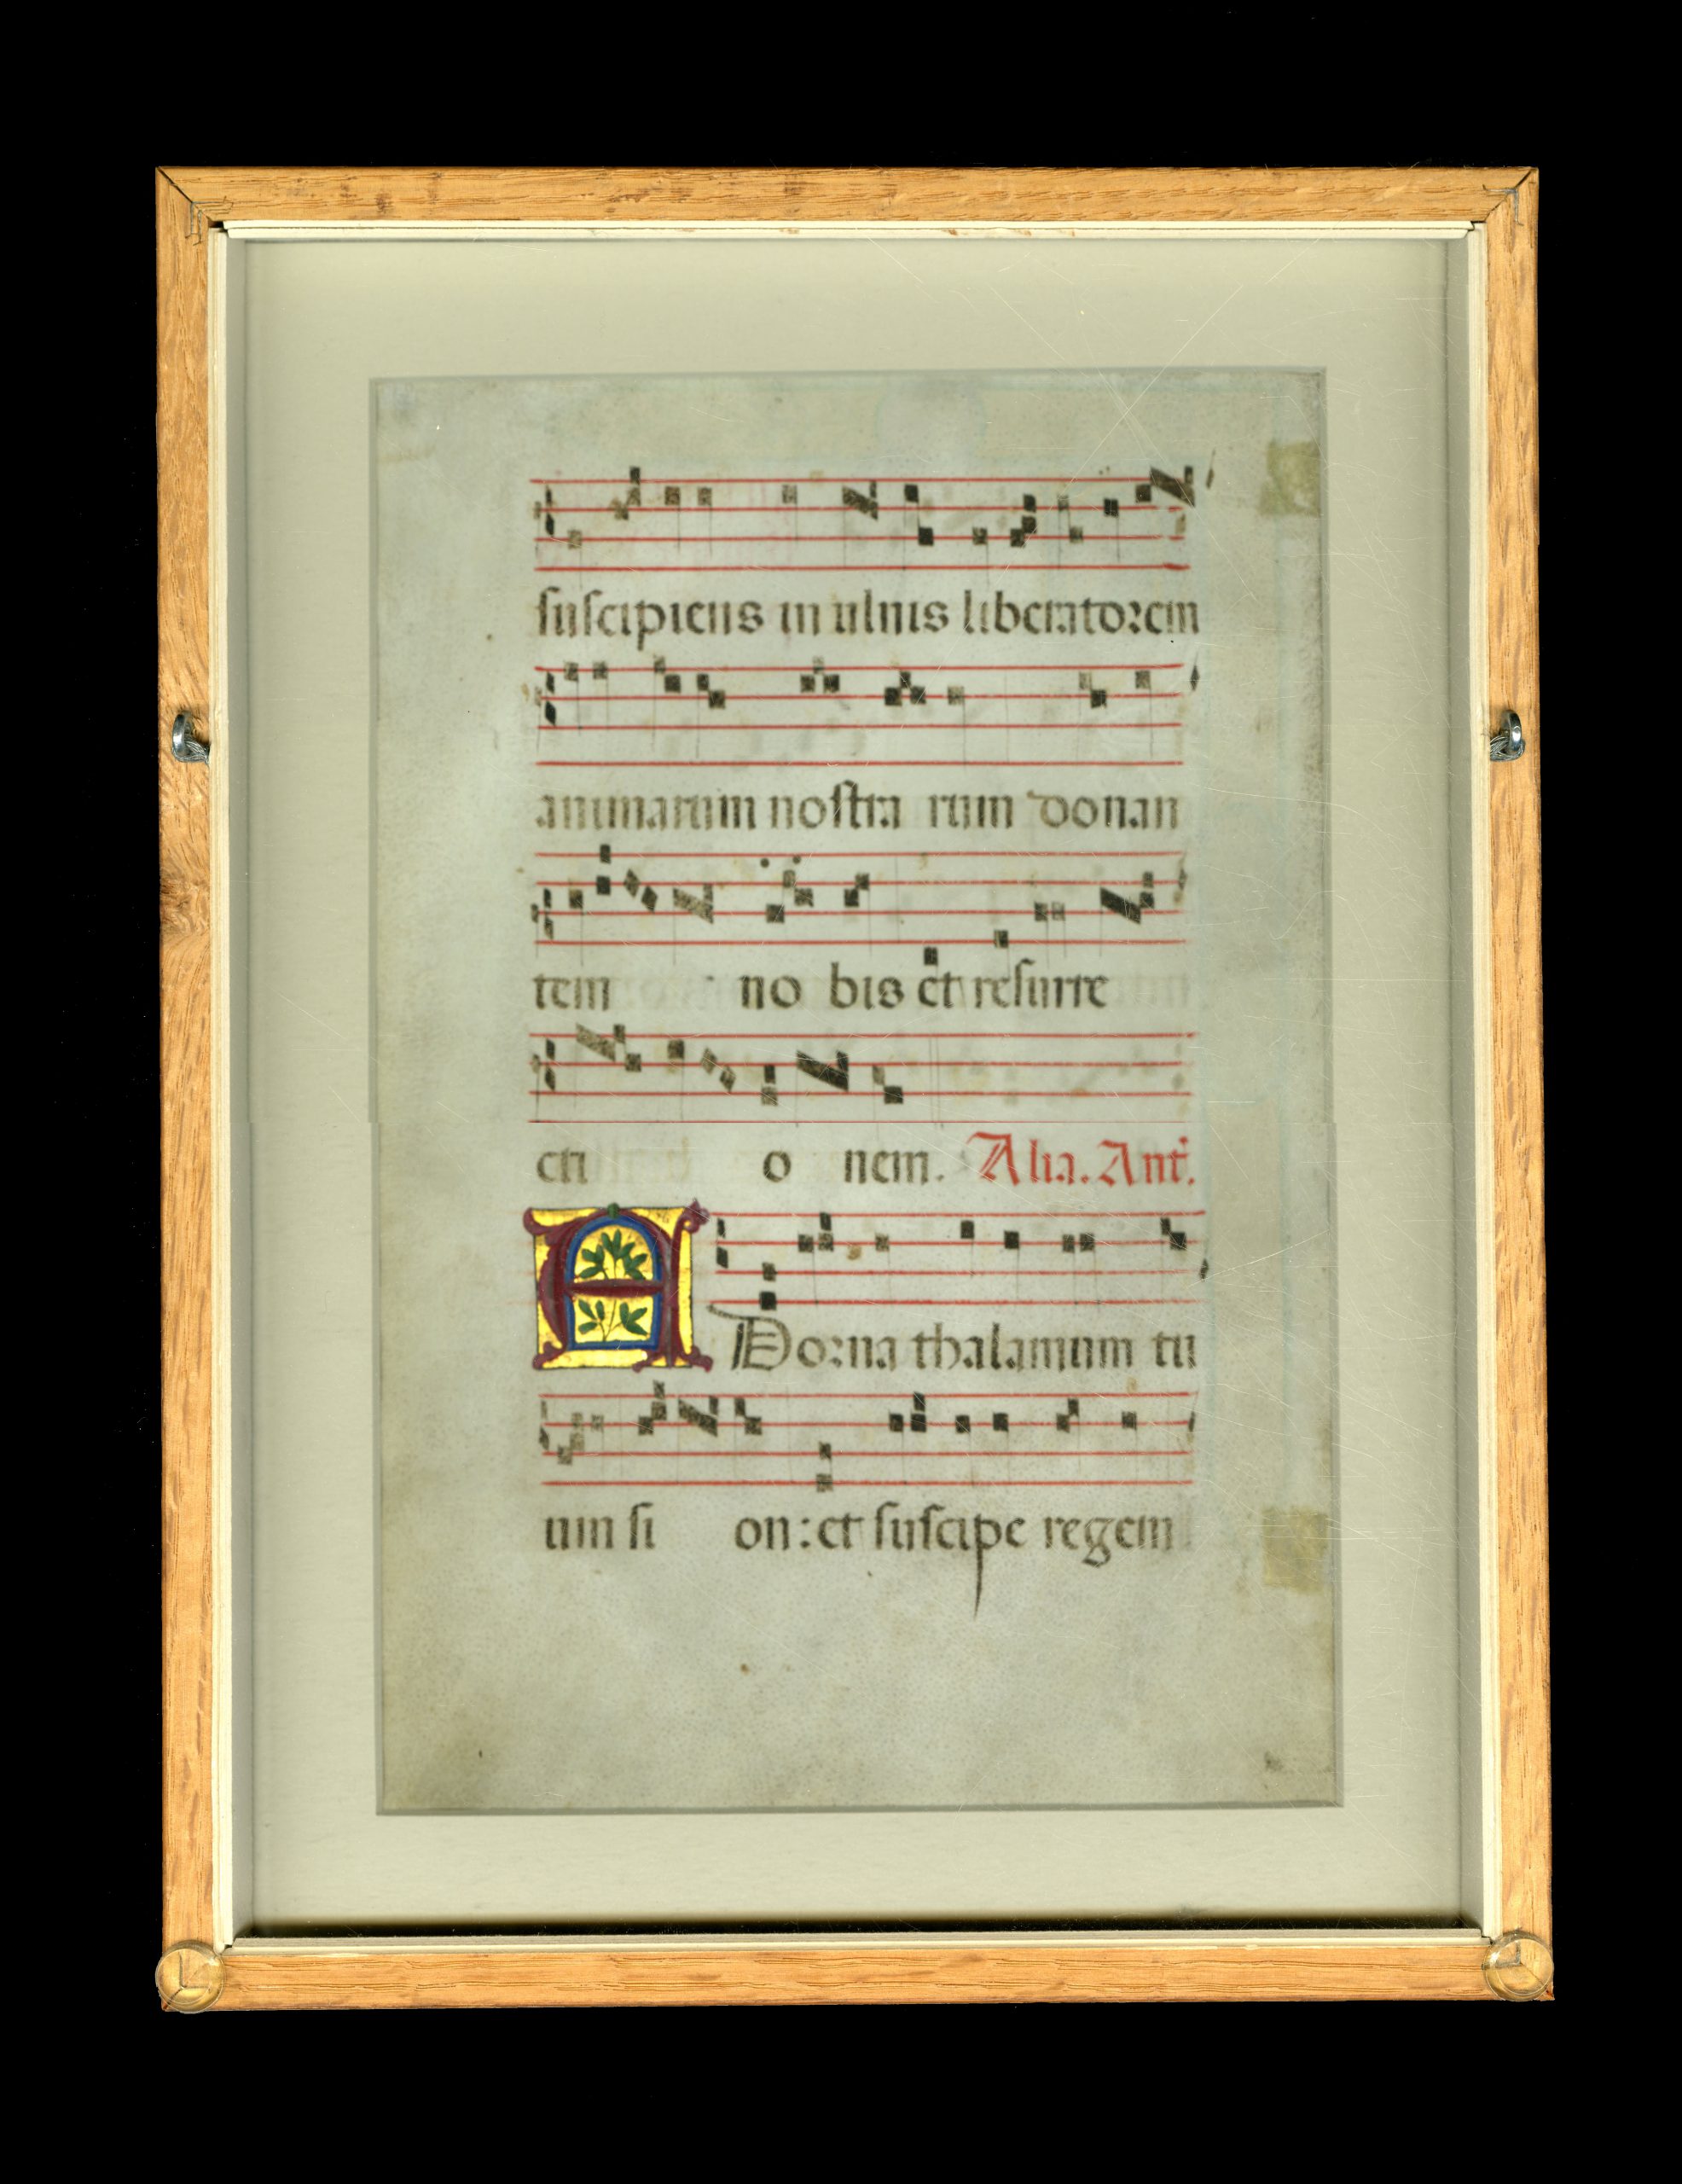 suscipiens in ulnis liberatorem
animarum nostra rum donan
tem no bis et resurre
cti o nem. Alia. Ant.
ADorna thalamum tu
um si on: et suscipe regem